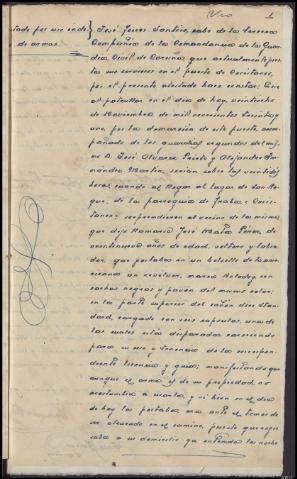 1
de armas.
José
cabo de la Tercera
Compañia de la Comandancia de la Guardia
Civil de Coruña, que actualmente presta
sus servicios en el puesto de
por el presente atestado hace constar: Que
el patrullar en el dia de hoy, veintiocho
de Noviembre de mil novecientos treinta y
uno por la demarcación de este puesto, acompañado
de los guardias segundos del mismo
D. José Alvarez y Alejandro
Martin, serian sobre las veintidos
horas cuando al llegar al lugar de San Roque,
de la parroquia de
sorprendieron al vecino de la misma
que dijo llamarse José Mato Pérez de
veintinueve años de edad, soltero y labrador,
que portaba en un bolsillo de la
un revolver, marca
cachas negras y pavón del mismo color,
en la parte superior del cañón dice
cargado con seis capsulas, una de
las cuales está disparada careciendo
para su uso y tenencia de la correspondiente
licencia y guia; manifestando que
aunque el arma es de su propiedad, no
acostumbra a usarla, y si bien en el dia
de hoy la portaba era ante el temor de
ser atracado en el camino, puesto que regresaba
a su domicilio ya entrada la noche